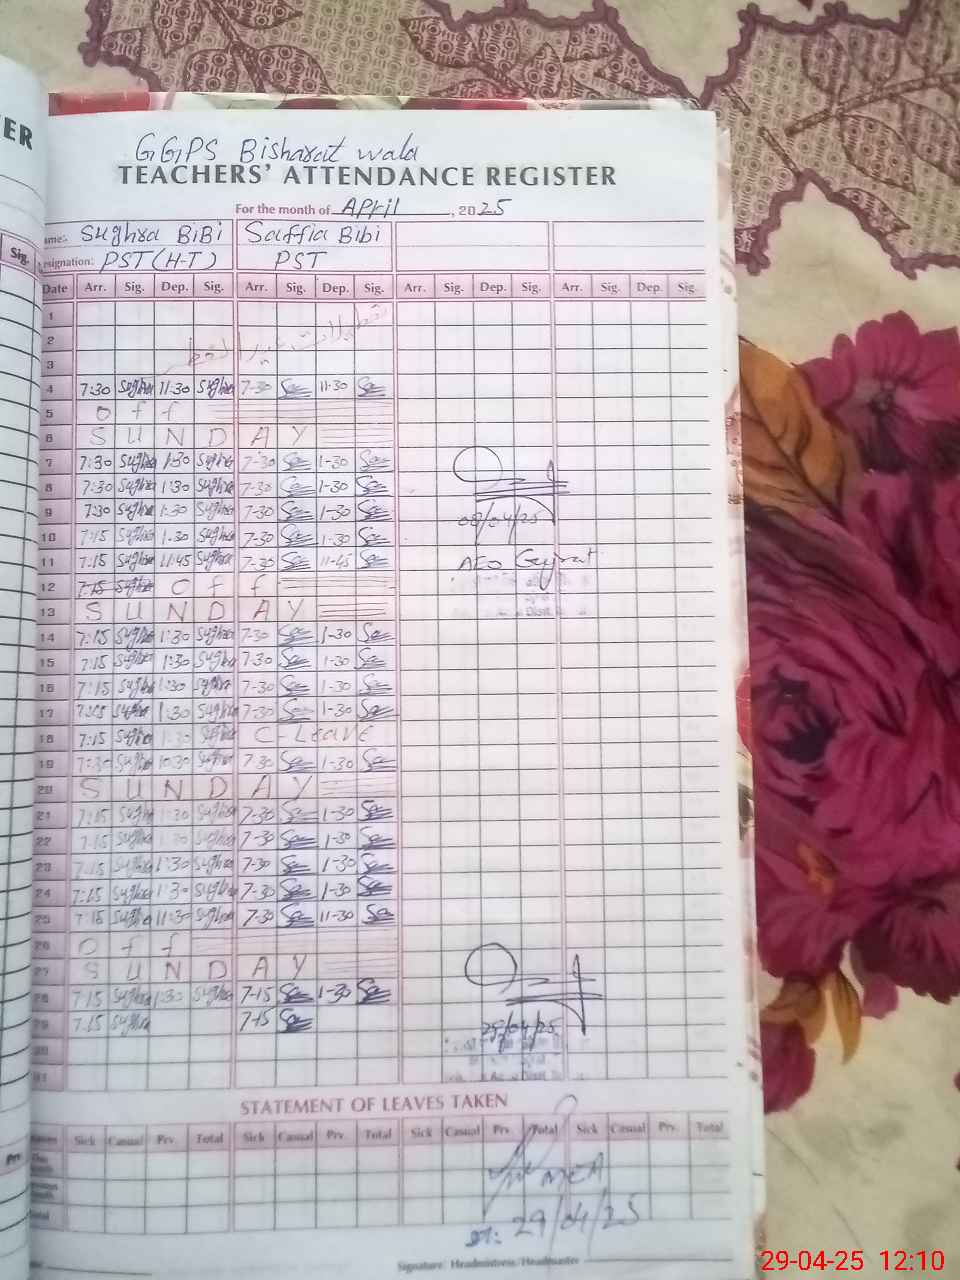 ER
Sig.
GGPS Bisharat wala
TEACHERS' ATTENDANCE REGISTER
For the month of April, 2025
ame:- Sughra BiBi Saffia Bibi
esignation: PST (H-T) PST
Date Arr. Sig. Dep. Sig. Arr. Sig. Dep. Sig. Arr. Sig. Dep. Sig. Arr. Sig. Dep. Sig.
1
2
3
4 7:30 Sughra 11:30 Sughra 7-30 11-30
5 O f f
6 S U N D A Y
7 7:30 Sughra 1:30 Sughra 7-30 1-30
8 7:30 Sughra 1:30 Sughra 7-30 1-30
9 7:30 Sughra 1:30 Sughra 7-30 1-30
08/04/25
10 7:15 Sughra 1:30 Sughra 7-30 1-30
11 7:15 Sughra 11:45 Sughra 7-30 11-45
AEO Gujrat
12 7:15 Sughra O f f
13 S U N D A Y
14 7:15 Sughra 1:30 Sughra 7-30 1-30
15 7:15 Sughra 1:30 Sughra 7-30 1-30
16 7:15 Sughra 1:30 Sughra 7-30 1-30
17 7:15 Sughra 1:30 Sughra 7-30 1-30
18 7:15 Sughra 1:30 Sughra C-Leave
19 7:30 Sughra 10:30 Sughra 7-30 1-30
20 S U N D A Y
21 7:15 Sughra 1:30 Sughra 7-30 1-30
22 7:15 Sughra 1:30 Sughra 7-30 1-30
23 7:15 Sughra 1:30 Sughra 7-30 1-30
24 7:15 Sughra 1:30 Sughra 7-30 1-30
25 7:15 Sughra 11:30 Sughra 7-30 11-30
26 O f f
27 S U N D A Y
28 7:15 Sughra 1:30 Sughra 7-15 1-30
29 7:15 Sughra 7-15
29/04/25
30
31
STATEMENT OF LEAVES TAKEN
Sick Casual Prv. Total Sick Casual Prv. Total Sick Casual Prv. Total Sick Casual Prv. Total
Prv.
MEA
29/04/25
Signature: Headmistress/Headmaster
29-04-25 12:10